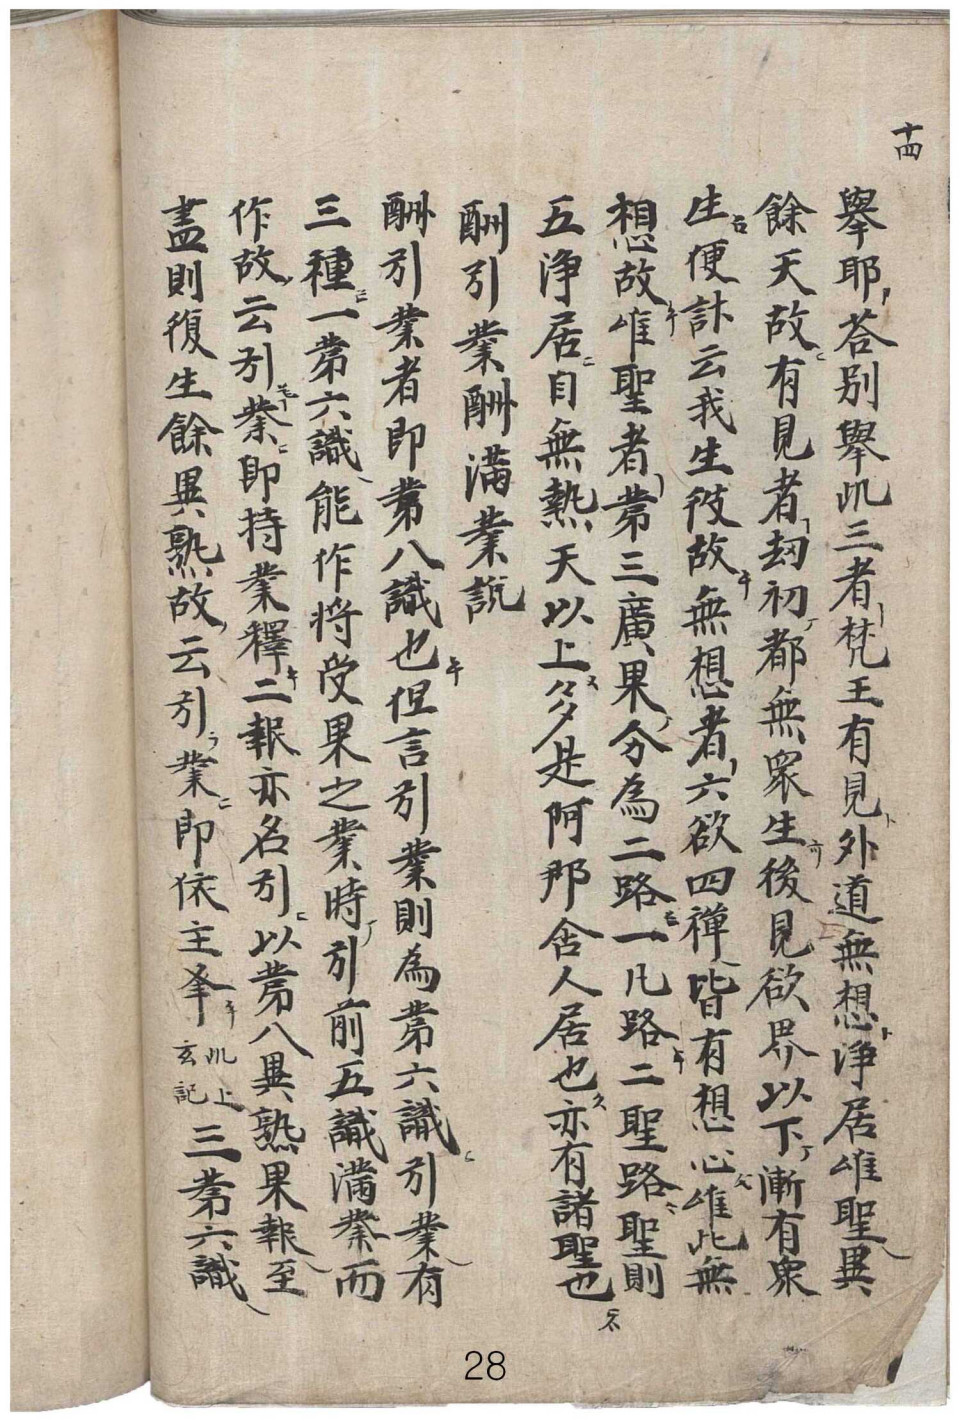 十四
擧耶答別擧此三者梵王有見外道無想淨居唯聖異
餘天故有見者劫初都無衆生後見欲界以下漸有衆
生便計云我生彼故無想者六欲四禪皆有想心唯此無
想故唯聖者第三廣果分為二路一凡路二聖路聖則
五淨居自無熱天以上多是阿那含人居也亦有諸聖也
酬引業酬滿業說
酬引業者即第八識也但言引業則為第六識引業有
三種一第六識能作將受果之業時引前五識滿業而
作故云引業即持業釋二報亦名引以第八異熟果報至
盡則復生餘異熟故云引業即依主釋此上玄記三第六識
28